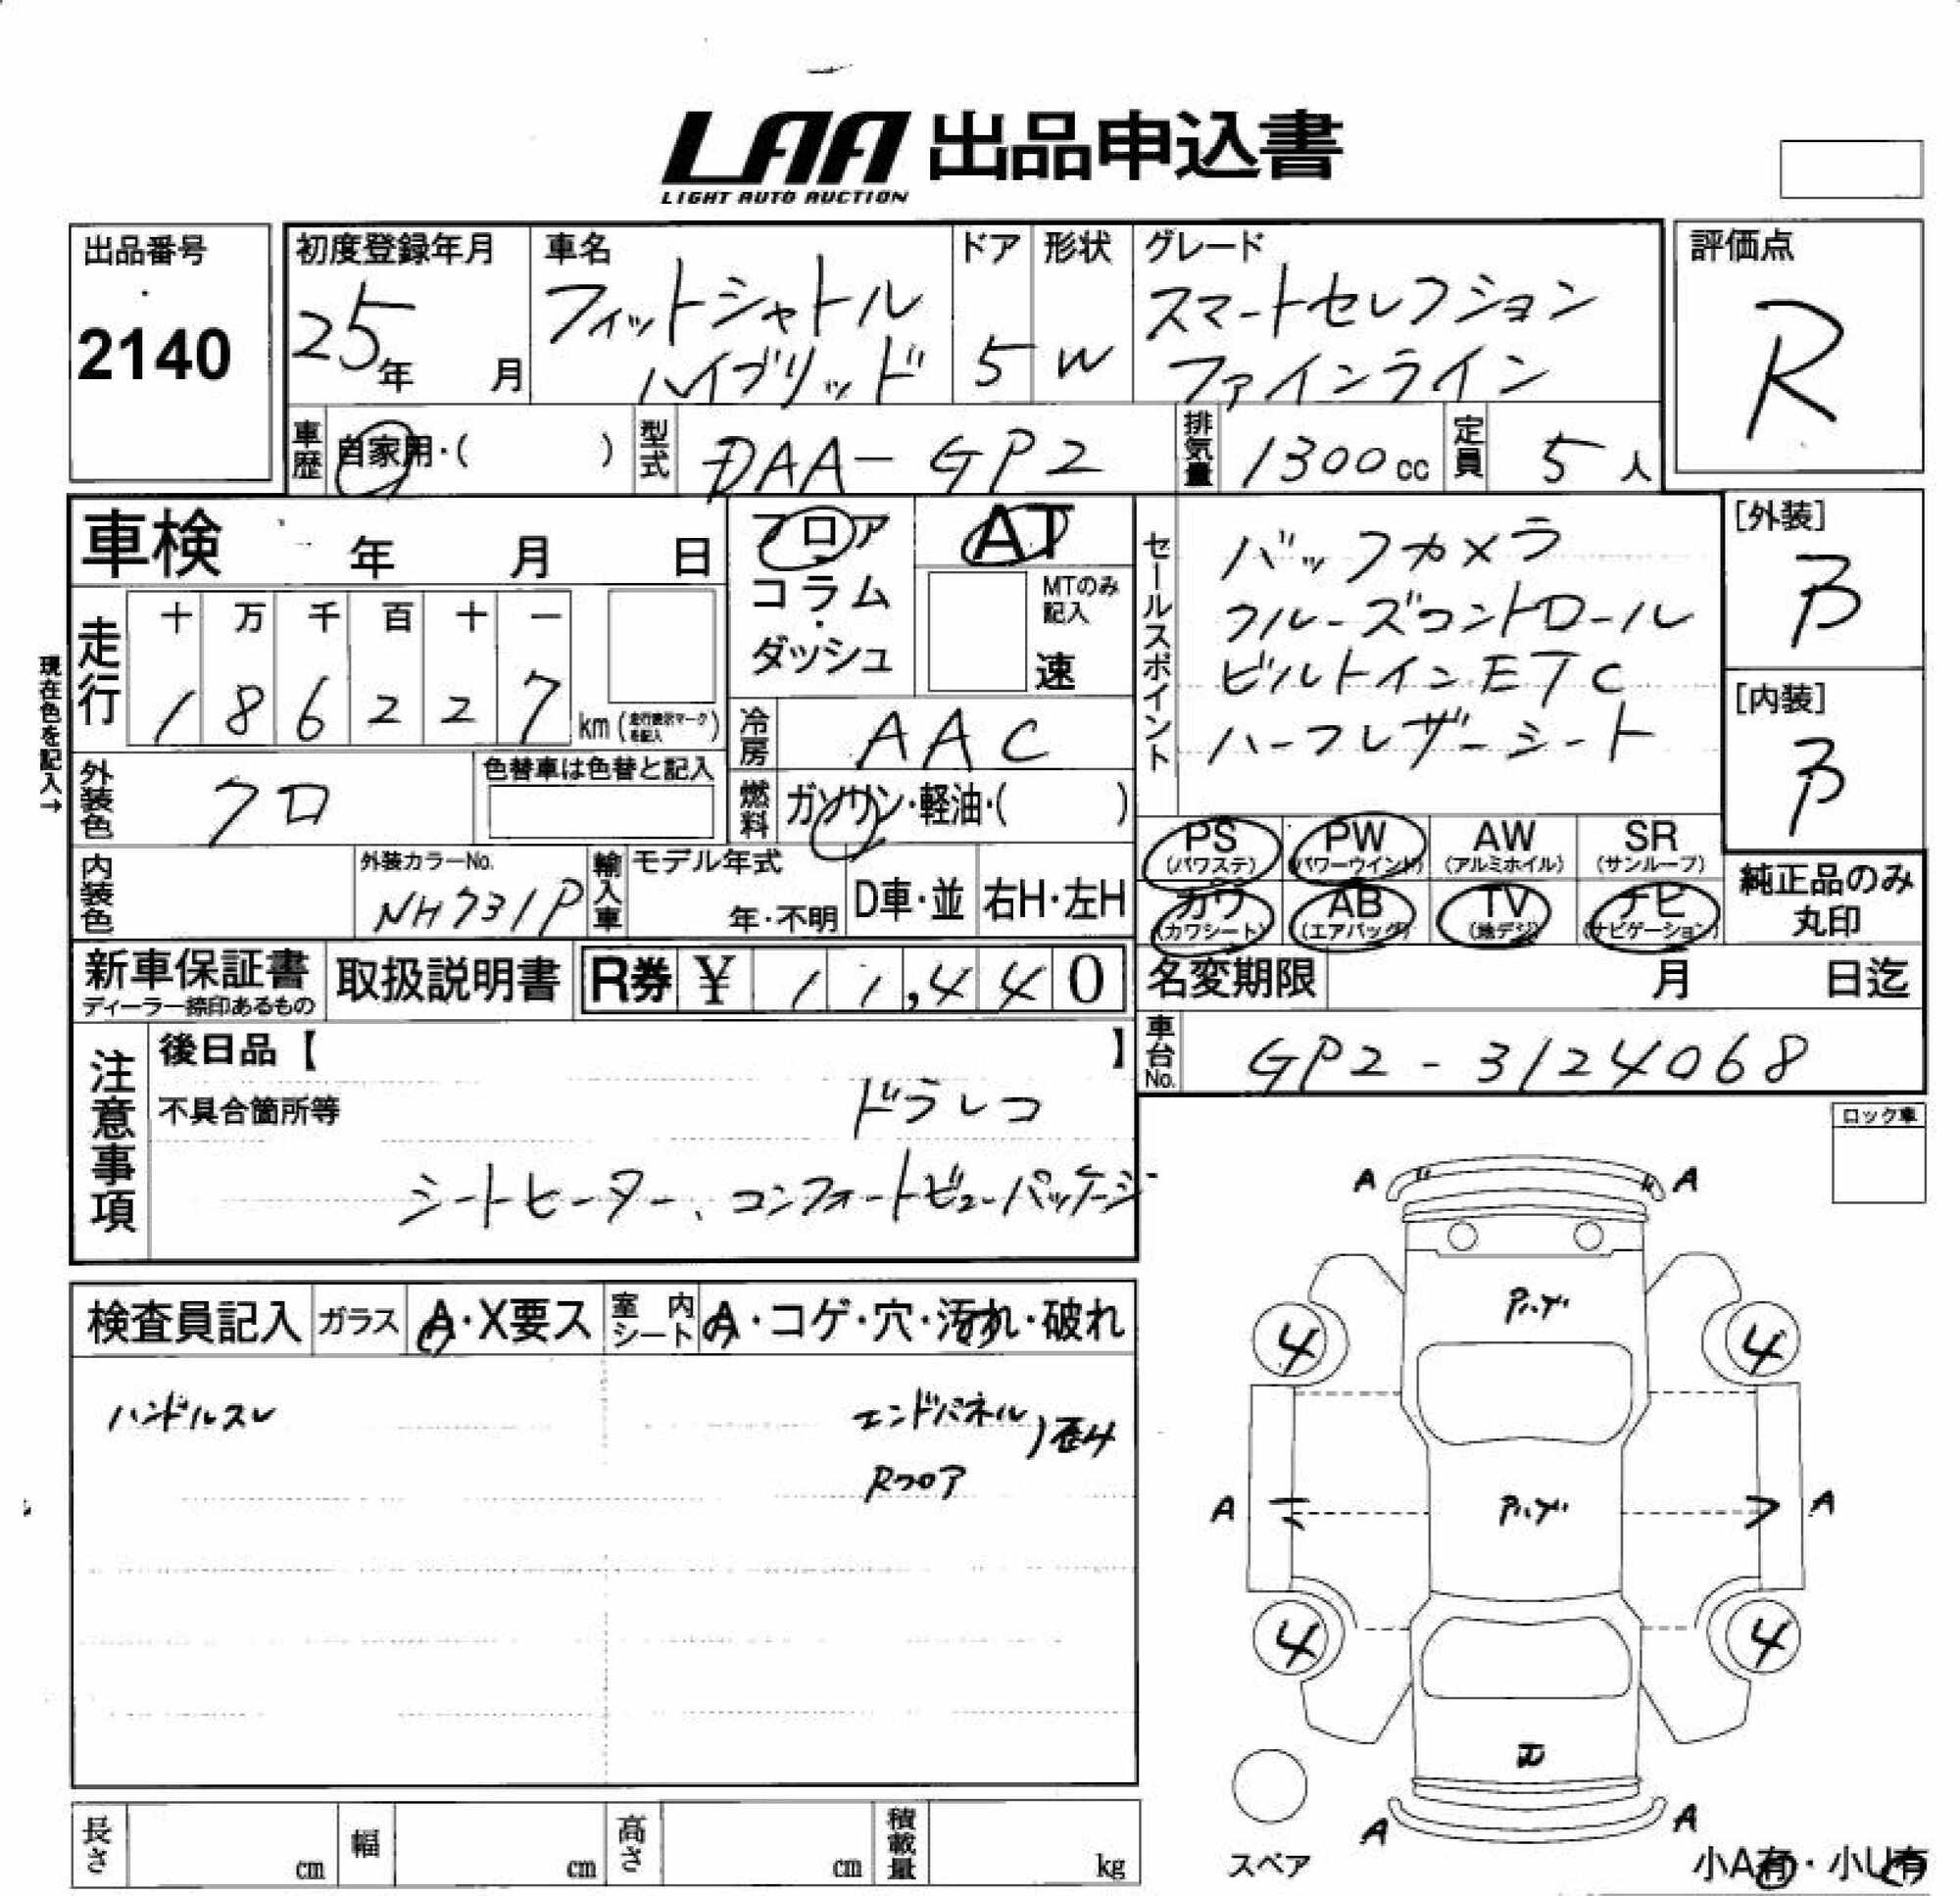 LAA 出品申込書
LIGHT AUTO AUCTION
出品番号
2140
初度登録年月
25年 月
車名
フィットシャトル
ハイブリッド
ドア
5
形状
W
グレード
スマートセレクション
ファインライン
評価点
R
車歴
自家用・( )
型式
DAA-GP2
排気量
1300cc
定員
5人
車検 年 月 日
フロア
コラム
・
ダッシュ
AT
MTのみ
記入
速
セールスポイント
バックカメラ
クルーズコントロール
ビルトインETC
ハーフレザーシート
[外装]
B
[内装]
B
現在色を記入→
走行
十 万 千 百 十 一
1 8 6 2 2 7
km(走行表示マークを記入)
冷房
AAC
外装色
クロ
色替車は色替と記入
燃料
ガソリン・軽油・( )
PS
(パワステ)
PW
(パワーウインド)
AW
(アルミホイル)
SR
(サンルーフ)
カワ
(カワシート)
AB
(エアバッグ)
TV
(地デジ)
ナビ
(ナビゲーション)
純正品のみ
丸印
内装色
外装カラーNo.
NH731P
輸入車
モデル年式
年・不明
D車・並
右H・左H
新車保証書
ディーラー捺印あるもの
取扱説明書
R券 ¥ 11,440
名変期限 月 日迄
車台No.
GP2-3124068
注意事項
後日品【 】
不具合箇所等
ドラレコ
シートヒーター、コンフォートビューパッケージ
ロック車
検査員記入
ガラス
A・X要ス
室内
シート
A・コゲ・穴・汚れ・破れ
ハンドルスレ
エンドパネル
Rフロア
歪み
A A
4 4
A A
4 4
A A
スペア
小A有・小U有
長さ cm
幅 cm
高さ cm
積載量 kg